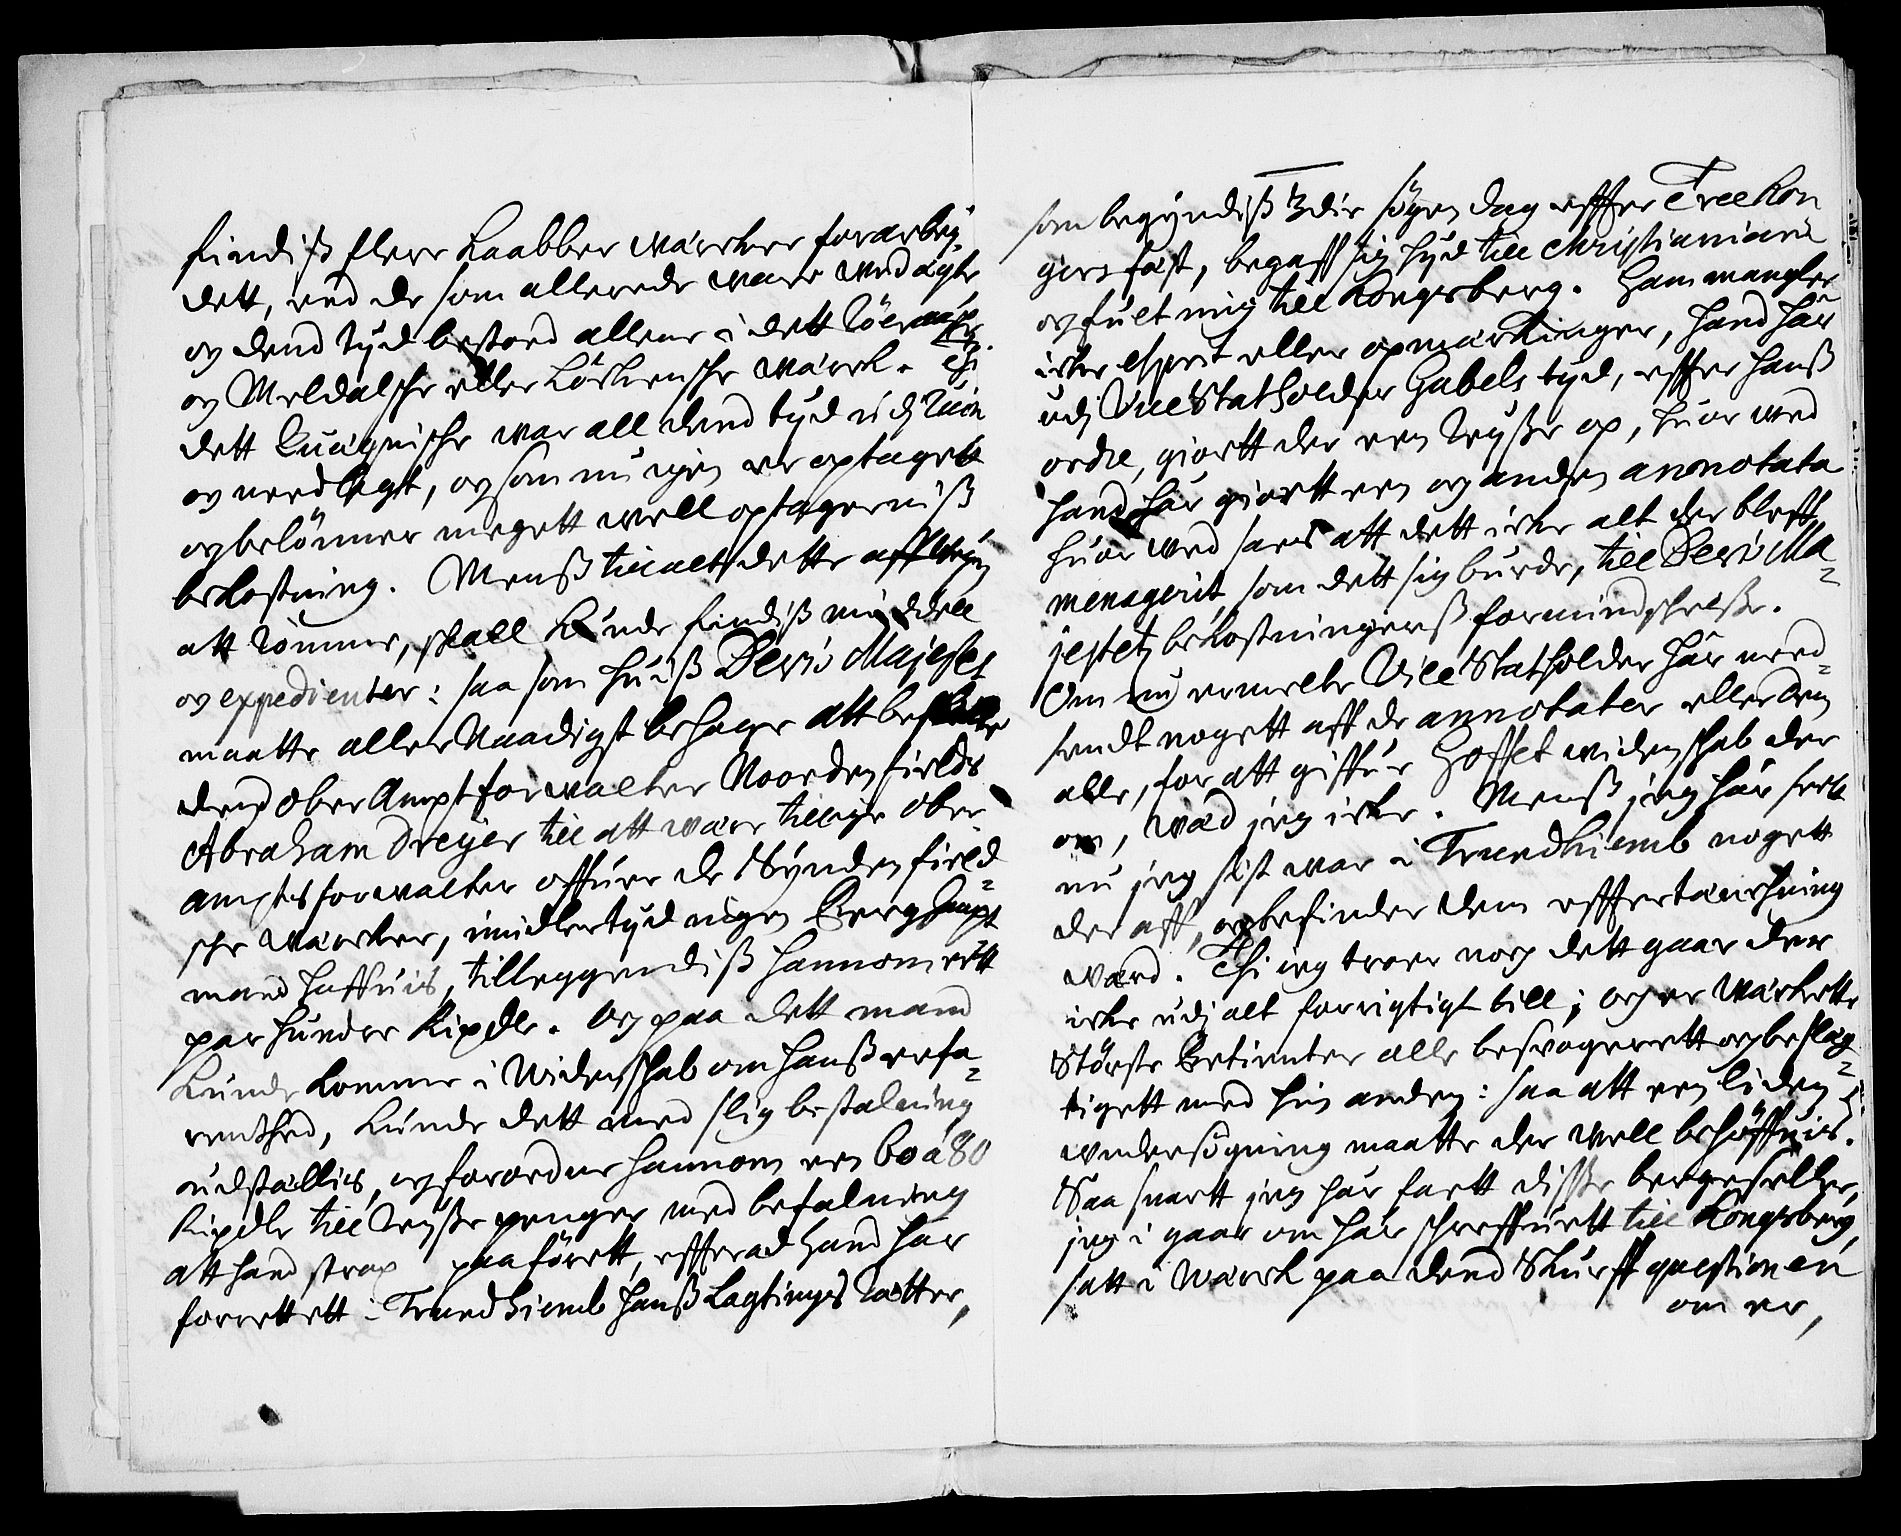 findiß flere Kaabber wärcker forarbey-
dett, end de som allerede ware wed ägte
og dend tyd bestoed allene i dett Röeraas
og Meldalsche eller Löckensche wärck. Thi
dett Quägnische war all dend tyd udj Ruin
og needlagt, og som nu igen er optagett
og belönner megett well optagerniß
bekostning. Menß till alt dette aff weyen
att römme, skall kunde findiß middell
og expedienter: saa som huiß Deris Majestet
maatte aller Naadigst behage att bestille
dend ober Ampt forwalter Noordenfields
Abraham Dreyer till att wäre tillige ober
Amptsforwalter offuer de Syndenfield-
sche wärcker, imidlertyd ingen Berghaupt
mand haffuis, tilleggendiß hannom ett
par hundre Rixdlr. Og paa dett mand
kunde komme i Widenschab om hanß erfa-
renthed, kunde dett med slig bestalning
udställis, og forordne hannom en 60 à 80
Rixdlr till Reyße penger med befalning
att hand strax paa förett, effterad hand har
forrettett i Trundhiemb hanß Lagtings Rætter,
som begyndiß 3die sögen dag effter Tree Kon
gers fäst, begaff sig hyd till Christiania
og fult mig till Kongsberg. Ham mangler
icke esprit eller opmärkinger, hand har
udj Vice Statholder Gabels tyd, effter hanß
ordre, giortt der een Reyße op, huor wed
hand har giortt een og anden annotata
huor wed saes att dett icke alt der bleff
menagerit som dett sig burde, till Deris Ma-
jestets bekostningerß formindschelße.
Om nu ermelte Vice Statholder har need-
sendt nogett aff de annotater eller dem
alle, for att giffue Hoffet widenschab der
om, wäd jeg icke. Menß jeg har seet
nu jeg sist war i Trundhiemb nogett
der aff, og befinder dem efftertänckning
wärd. Thi jeg troer nog dett gaar der
icke udj alt forrigtigt till; og er Wärkette
Störste Betienter alle besvogerett og beslag-
tigett med hin anden: saa att een liden
undersögning maatte der well behöffuis.
Saa snartt jeg har faett disße bergeseller,
jeg i gaar om har schreffuett till Kongsberg,
satt i wärck paa dend Skurff questionen
om er,